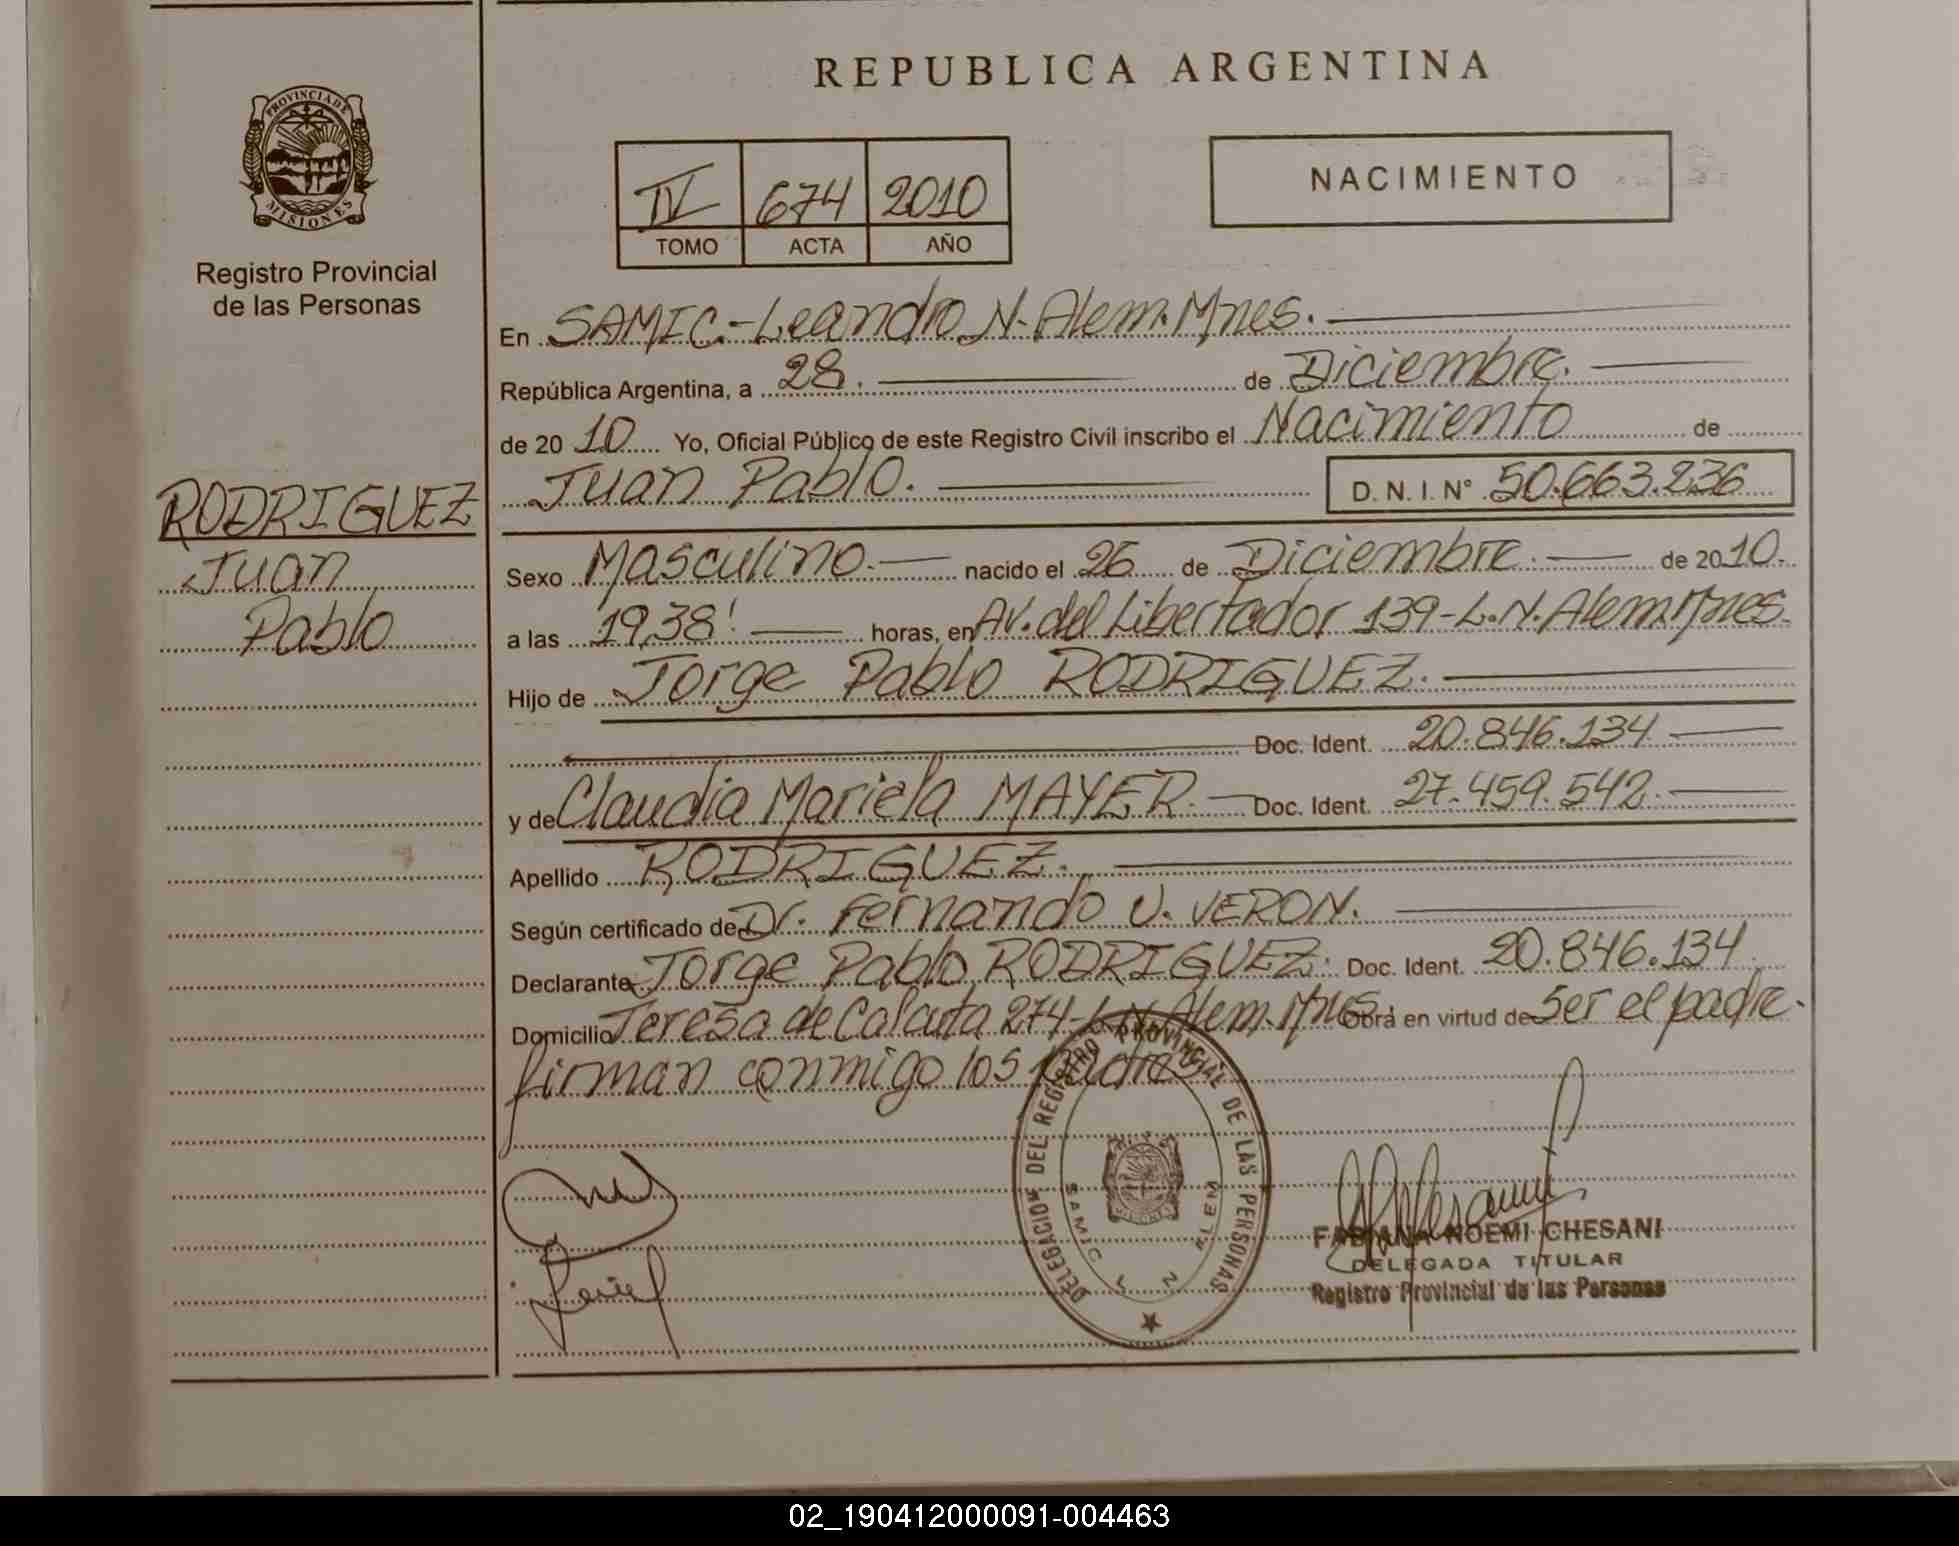 REPUBLICA ARGENTINA
PROVINCIA DE
MISIONES
Registro Provincial
de las Personas
IV 674 2010
TOMO ACTA AÑO
NACIMIENTO
En SAMIC-Leandro N. Alem. Mnes.
República Argentina, a 28. de Diciembre.
de 2010 Yo, Oficial Público de este Registro Civil inscribo el Nacimiento de
Juan Pablo. D. N. I. N° 50.663.236
RODRIGUEZ
Juan
Pablo
Sexo Masculino. nacido el 26 de Diciembre. de 2010.
a las 19,38' horas, en Av. del Libertador 139-L.N. Alem Mnes.
Hijo de Jorge Pablo RODRIGUEZ.
Doc. Ident. 20.846.134
y de Claudia Mariela MAYER. Doc. Ident. 27.459.542.
Apellido RODRIGUEZ.
Según certificado de Dr. Fernando U. VERON.
Declarante Jorge Pablo RODRIGUEZ. Doc. Ident. 20.846.134
Domicilio Teresa de Calcuta 274-L.N. Alem. Mnes. Obra en virtud de Ser el padre.
firman conmigo los padres
DELEGACION DEL REGISTRO PROVINCIAL DE LAS PERSONAS
SAMIC L N ALEM
FABIANA NOEMI CHESANI
DELEGADA TITULAR
Registro Provincial de las Personas
02_190412000091-004463